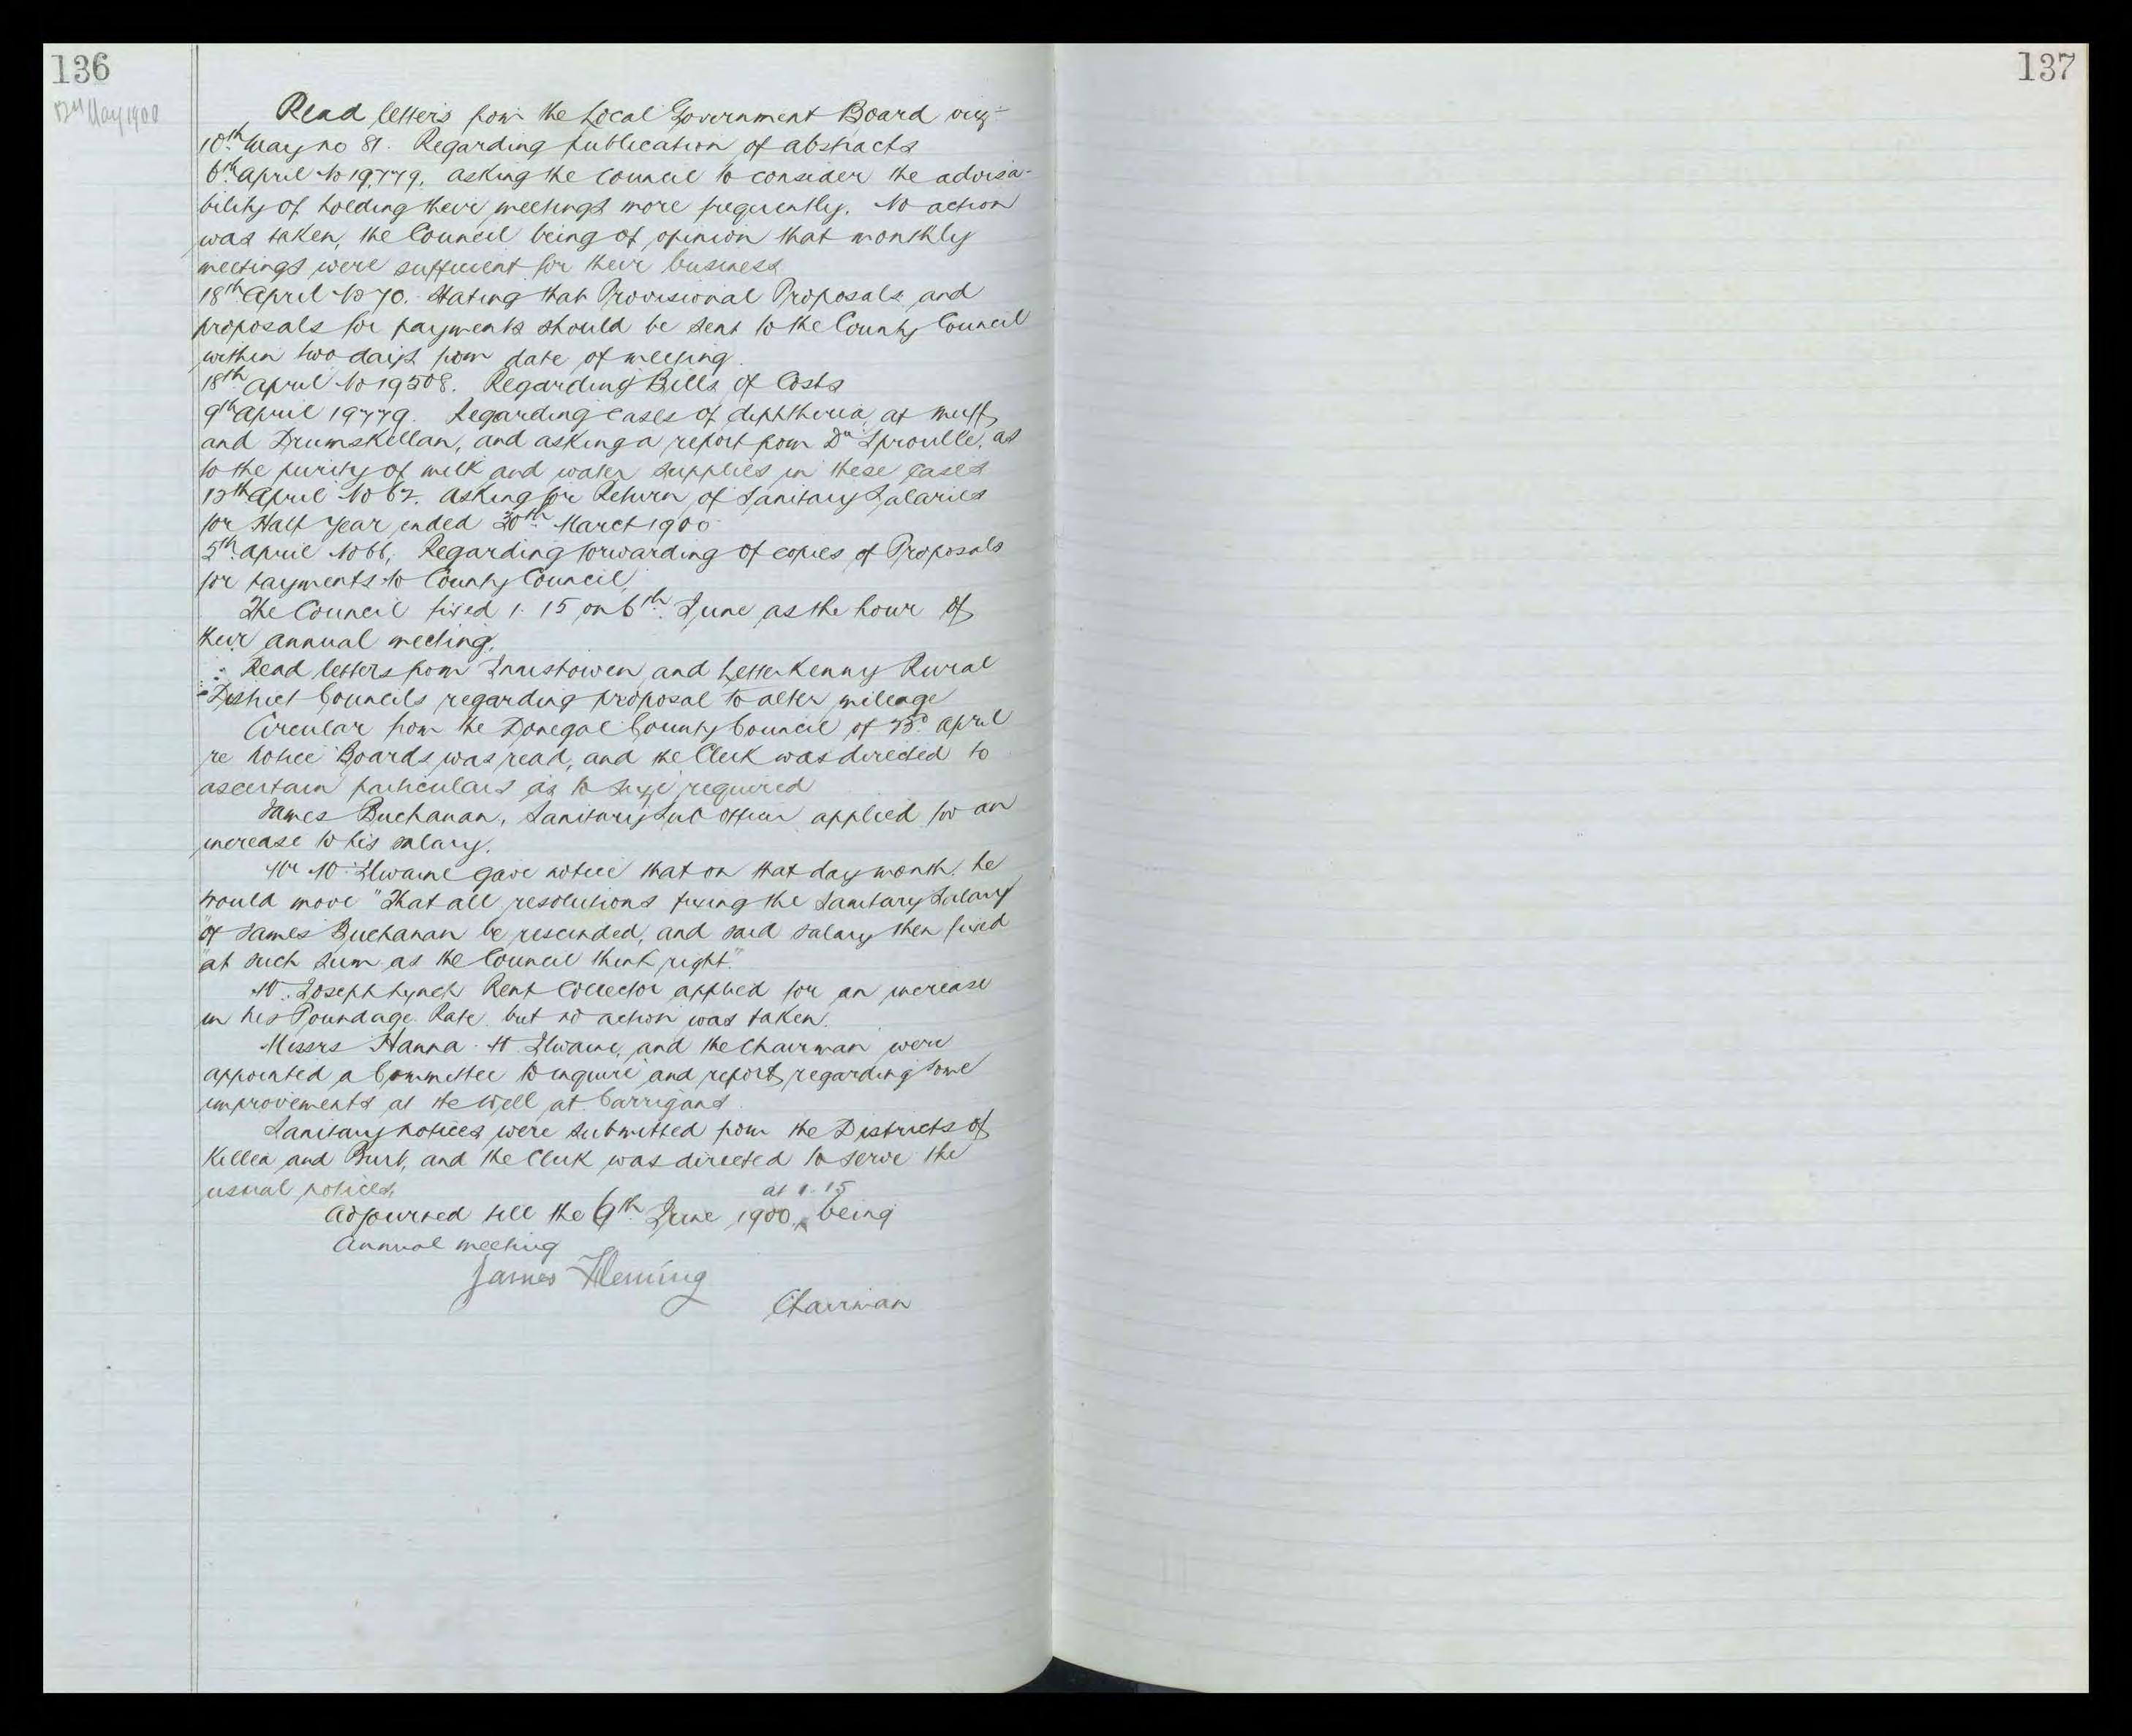 136
May 1900
Read letters from the Local Government Board viz:-
10th May No 81. Regarding publication of abstracts
6th April No 19,779. asking the Council to consider the advisa-
bility of holding their meetings more frequently. No action
was taken, the Council being of opinion that monthly
meetings were sufficient for their business
18th April No 70. Stating that Provisional Proposals and
proposals for payments should be sent to the County Council
within two days from date of meeting.
18th April No 19508. Regarding Bills of Costs
9th April 19779. Regarding cases of diphtheria at Muff
and Drumskellan, and asking a report from Dr Sproulle, as
to the purity of milk and water supplies in these cases
April No 67. Asking for Return of Sanitary Salaries
for Half Year ended 30th March 1900
5th April No 66, Regarding forwarding of copies of Proposals
for payments to County Council,
The Council fixed 1.15 on 6th June as the hour of
their annual meeting.
Read letters from Innishowen and Letterkenny Rural
District Councils regarding proposal to alter mileage
Circular from the Donegal County Council of April
re Notice Boards was read, and the Clerk was directed to
ascertain particulars as to size required
James Buchanan, Sanitary Sub Officer applied for an
increase to his salary.
Mr McIlwaine gave notice that on that day month he
would move "That all resolutions fixing the Sanitary Salary
"of James Buchanan be rescinded, and said salary then fixed
"at such sum as the Council think right."
Mr. Joseph Lynch Rent Collector applied for an increase
in his Poundage Rate but no action was taken.
Messrs Hanna McIlwaine, and the Chairman were
appointed a Committee to inquire and report regarding some
improvements at the well at Carrigans.
Sanitary notices were submitted from the Districts of
Killea and Burt, and the Clerk was directed to serve the
usual notices.
at 1.15
Adjourned till the 6th June 1900, being
Annual meeting
James Fleming
Chairman
137